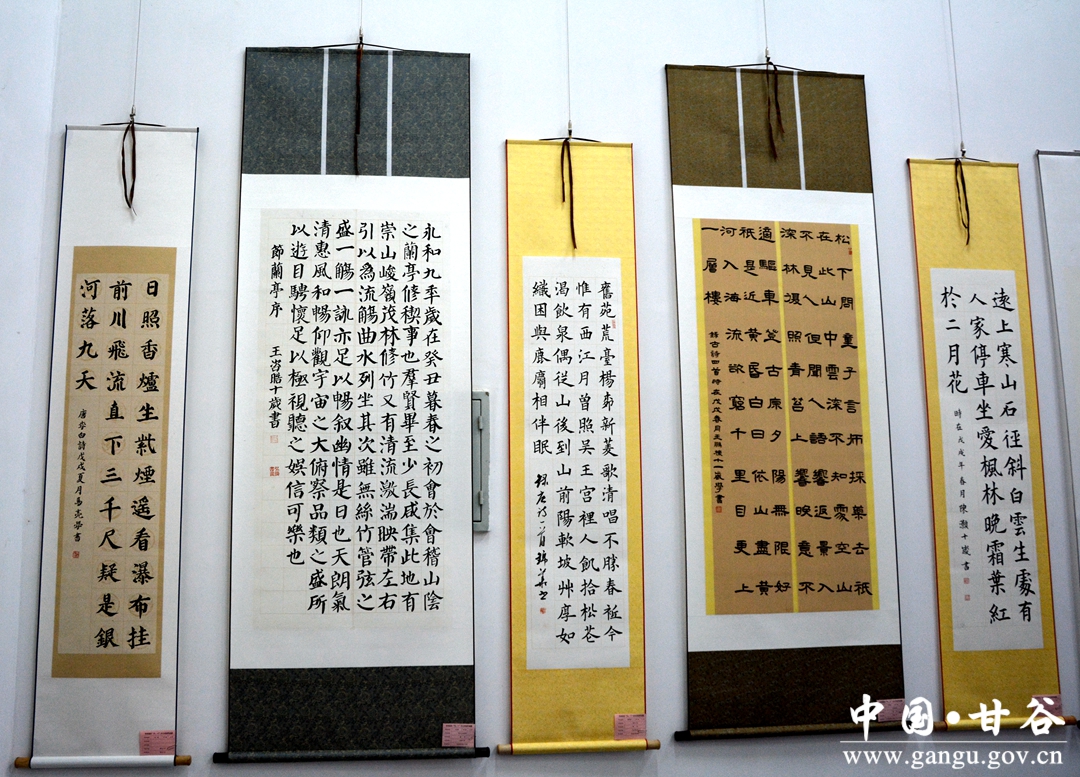 日照香爐生紫煙遥看瀑布挂
前川飛流直下三千尺疑是銀
河落九天
唐李白詩戊戌夏月馬亮榮書
永和九年歲在癸丑暮春之初會於會稽山陰
之蘭亭修禊事也羣賢畢至少長咸集此地有
崇山峻嶺茂林修竹又有清流激湍映帶左右
引以為流觴曲水列坐其次雖無絲竹管弦之
盛一觴一詠亦足以暢叙幽情是日也天朗氣
清惠風和暢仰觀宇宙之大俯察品類之盛所
以遊目騁懷足以極視聽之娱信可樂也
節蘭亭序 王芮皓十歲書
舊苑荒臺楊柳新菱歌清唱不勝春祗今
惟有西江月曾照吴王宫裡人飢拾松花
渴飲泉偶從山後到山前陽軟坡艸厚如
織困與麻麛相伴眠
松下問童子言師採藥去祇
在此山中雲深不知處空山
不見人但聞人語響返景入
深林復照青苔上嚮晚意不
適驅車登古原夕陽無限好
祇是近黄昏白日依山盡黄
河入海流欲窮千里目更上
一層樓
錄古詩四首時在戊戌春月王十一歲學書
遠上寒山石徑斜白雲生處有
人家停車坐愛楓林晚霜葉紅
於二月花
時在戊戌年春月陳灝十歲書
中国·甘谷
www.gangu.gov.cn